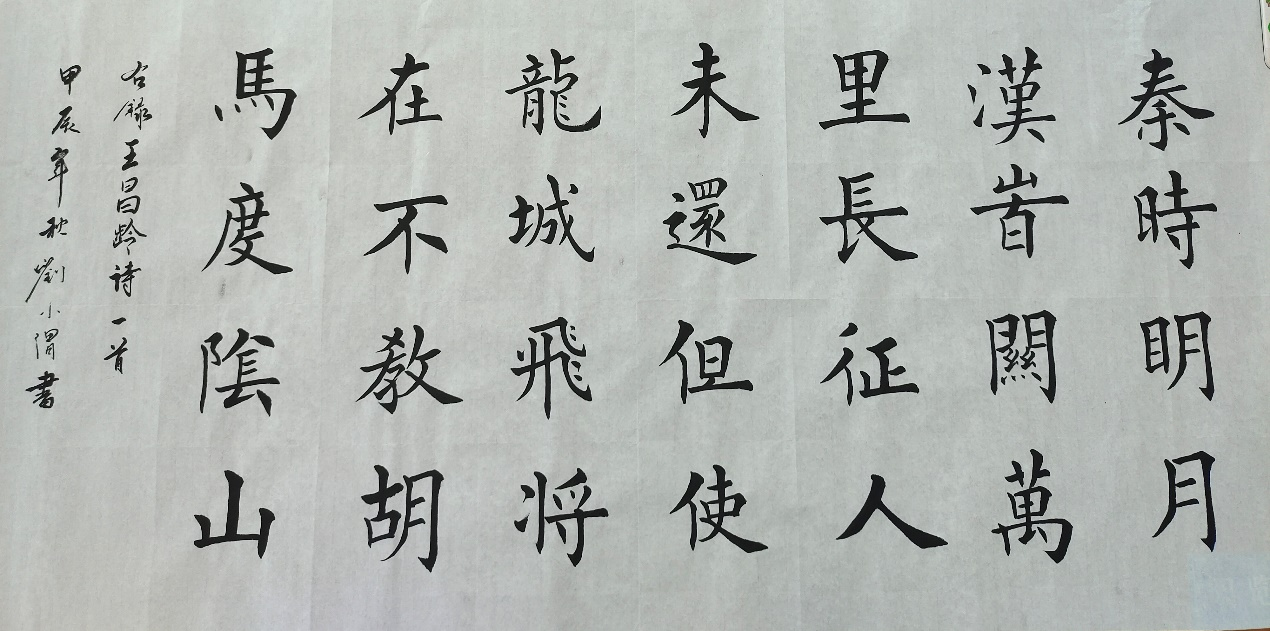 秦時明月
漢旹關萬
里長征人
未還但使
龍城飛将
在不教胡
馬度陰山
右録王昌龄詩一首
甲辰年秋劉小渭書